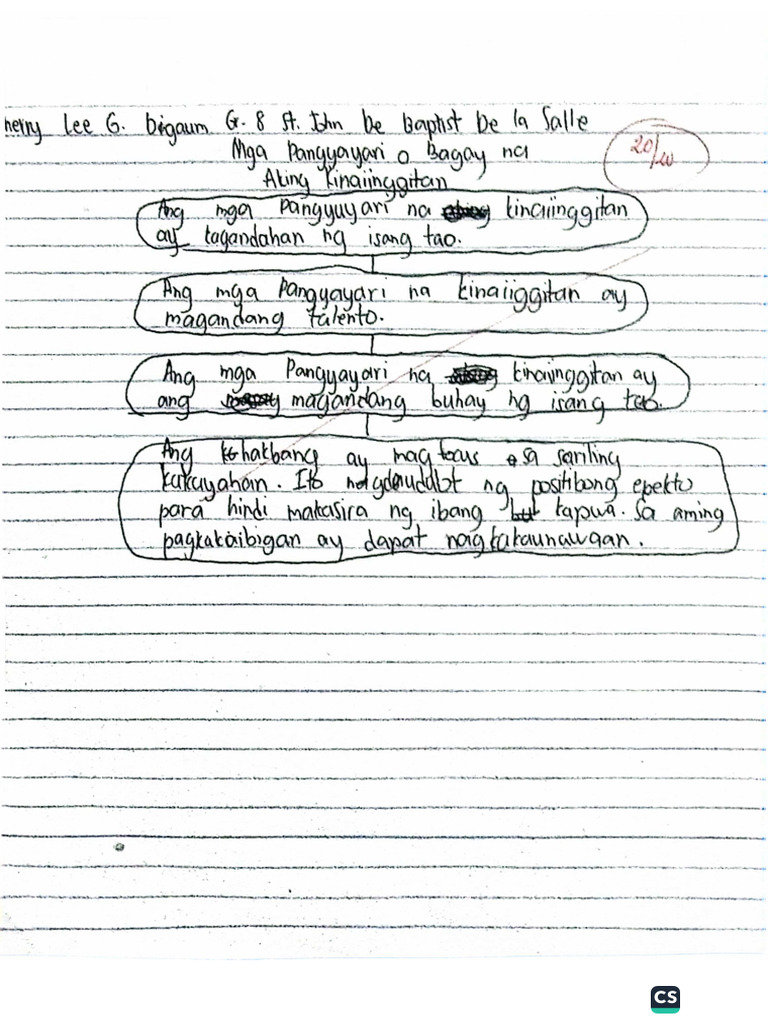 herry Lee G. Bigaum G. 8 St. John De Baptist De la Salle
Mga Pangyayari o Bagay na
Aking Kinaiinggitan
20/20
Ang mga Pangyuyari na kinaiinggitan
ay kagandahan ng isang tao.
Ang mga Pangyayari na kinaiiggitan ay
magandang talento.
Ang mga Pangyayari na kinaiinggitan ay
ang magandang buhay ng isang tao.
Ang hakbang ay mag focus sa sariling
kakayahan. Ito ng positibong epekto
para hindi makasira ng ibang kapwa. Sa aming
pagkakaibigan ay dapat nagkakaunawaan.
CS